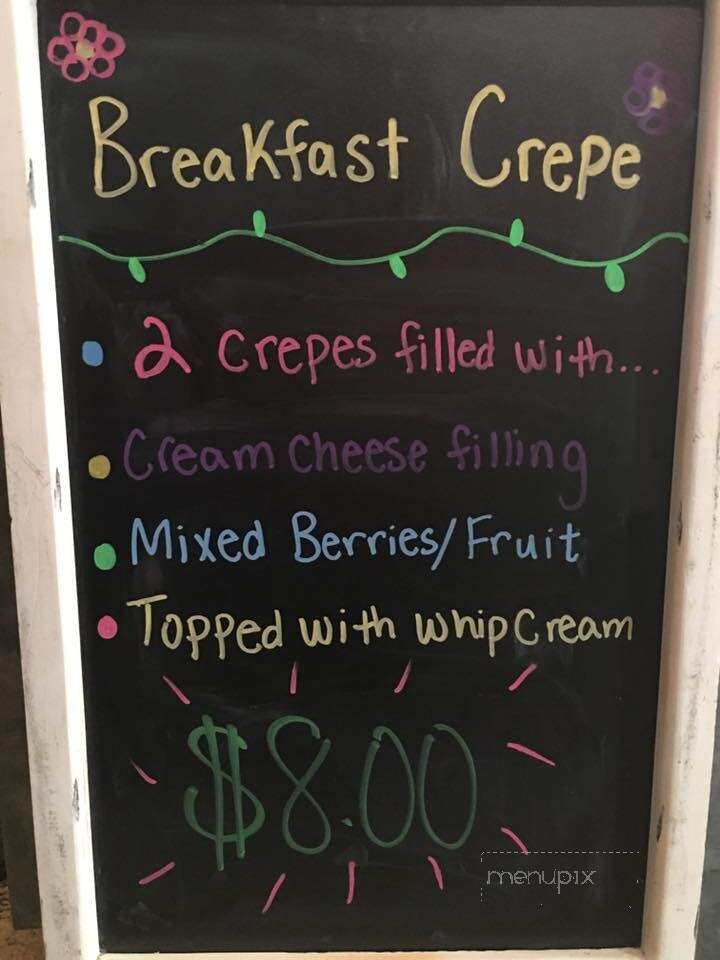 Breakfast Crepe
2 crepes filled with...
Cream cheese filling
Mixed Berries/Fruit
Topped with whip cream
$8.00
menupix